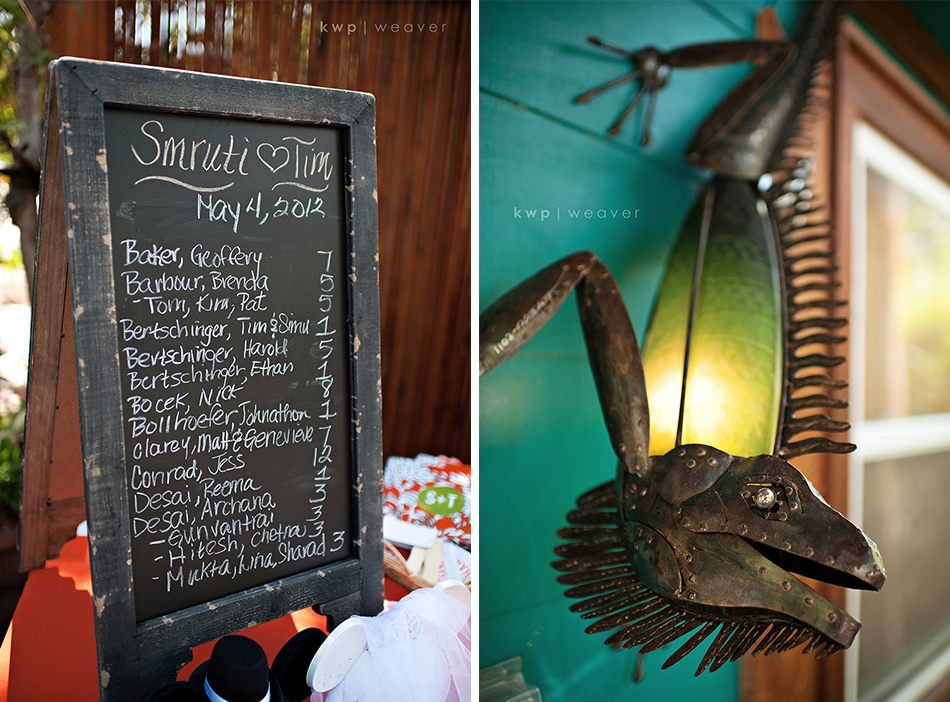 kwp | weaver
Smruti ♡ Tim
May 4, 2012
Baker, Geoffery 7
Barbour, Brenda 5
- Tom, Kim, Pat 5
Bertschinger, Tim & Simu 1
Bertschinger, Harold 5
Bertschinger, Ethan 1
Bocek, Nick 8
Bollhoefer, Johnathon 1
Clarey, Matt & Genevieve 7
Conrad, Jess 12
Desai, Reema 1
Desai, Archana 3
- Gunvantrai 3
- Hitesh, Chetna 3
- Mukta, Lina, Sharad 3
S+T
kwp | weaver